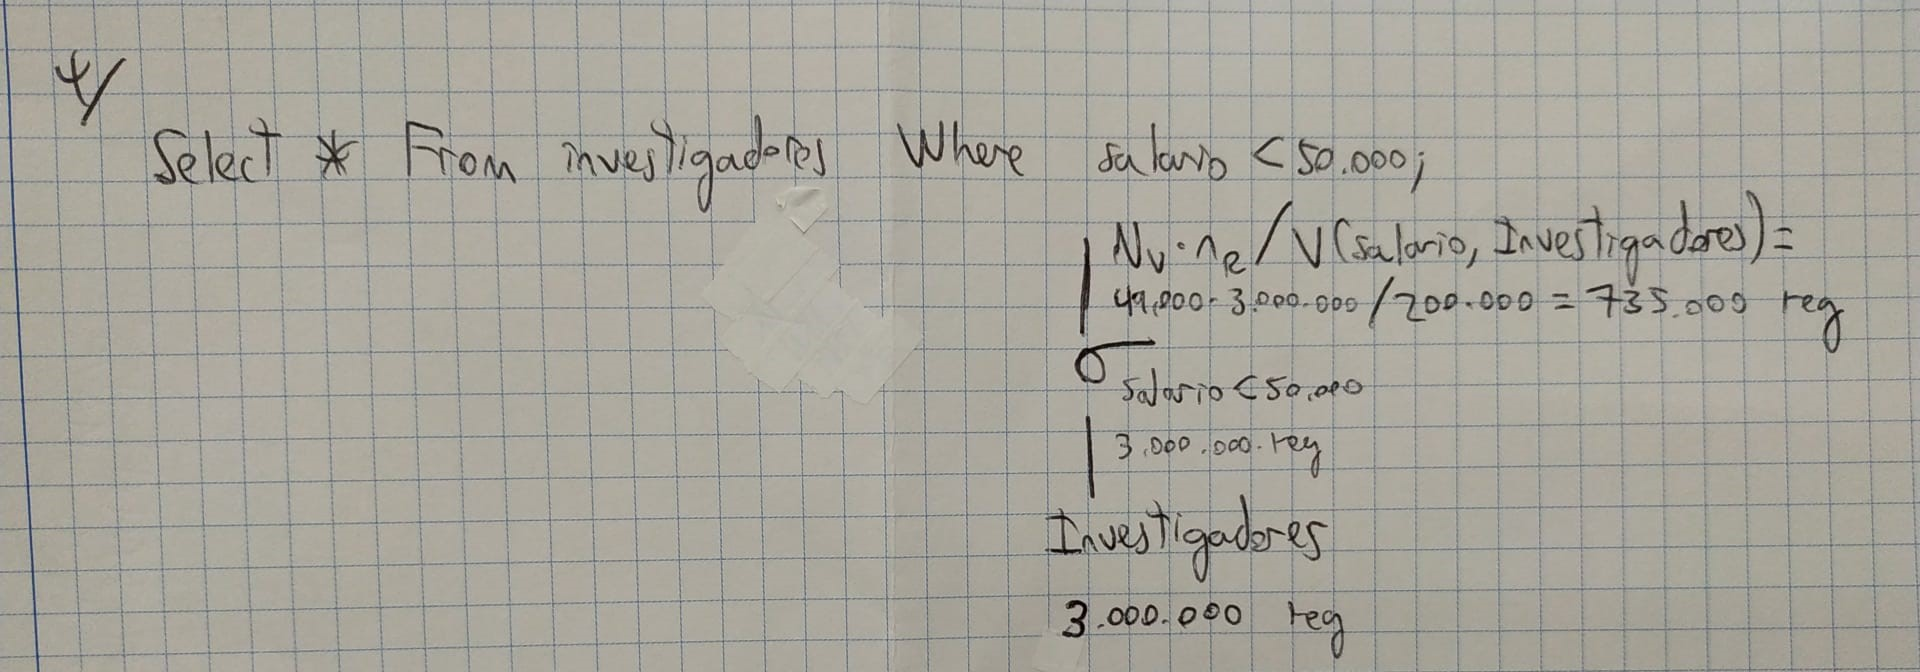 4/
Select * From investigadores Where salario < 50.000;
Nv · nR / V(salario, Investigadores) =
49.000 · 3.000.000 / 200.000 = 735.000 reg
σ salario < 50.000
3.000.000 reg
Investigadores
3.000.000 reg